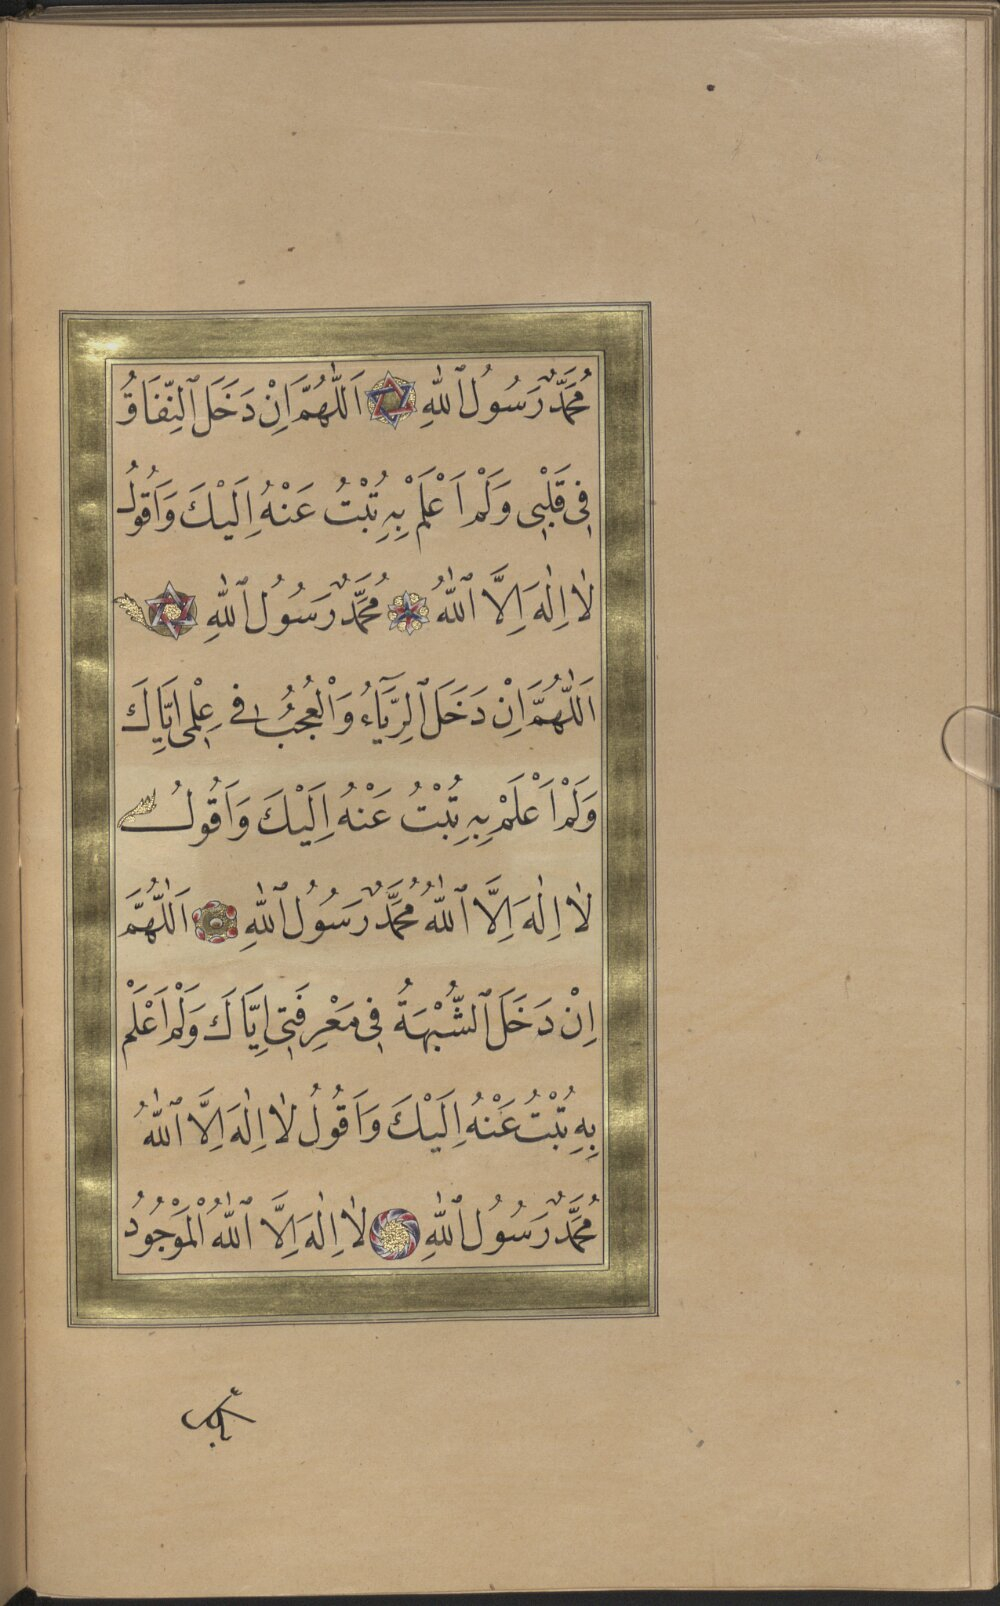 مُحَمَّدٌ رَسُولُ ٱللّٰهِ اَللّٰهُمَّ اِنْ دَخَلَ ٱلنِّفَاقُ
فِى قَلْبِى وَلَمْ اَعْلَمْ بِهِ تُبْتُ عَنْهُ اِلَيْكَ وَاَقُولُ
لَا اِلٰهَ اِلَّا ٱللّٰهُ مُحَمَّدٌ رَسُولُ ٱللّٰهِ
اَللّٰهُمَّ اِنْ دَخَلَ ٱلرِّيَٓاءُ وَالْعُجُبُ فِى عِلْمِى اِيَّاكَ
وَلَمْ اَعْلَمْ بِهِ تُبْتُ عَنْهُ اِلَيْكَ وَاَقُولُ
لَا اِلٰهَ اِلَّا ٱللّٰهُ مُحَمَّدٌ رَسُولُ ٱللّٰهِ اَللّٰهُمَّ
اِنْ دَخَلَ ٱلشُّبْهَةُ فِى مَعْرِفَتِى اِيَّاكَ وَلَمْ اَعْلَمْ
بِهِ تُبْتُ عَنْهُ اِلَيْكَ وَاَقُولُ لَا اِلٰهَ اِلَّا ٱللّٰهُ
مُحَمَّدٌ رَسُولُ ٱللّٰهِ لَا اِلٰهَ اِلَّا ٱللّٰهُ الْمَوْجُودُ